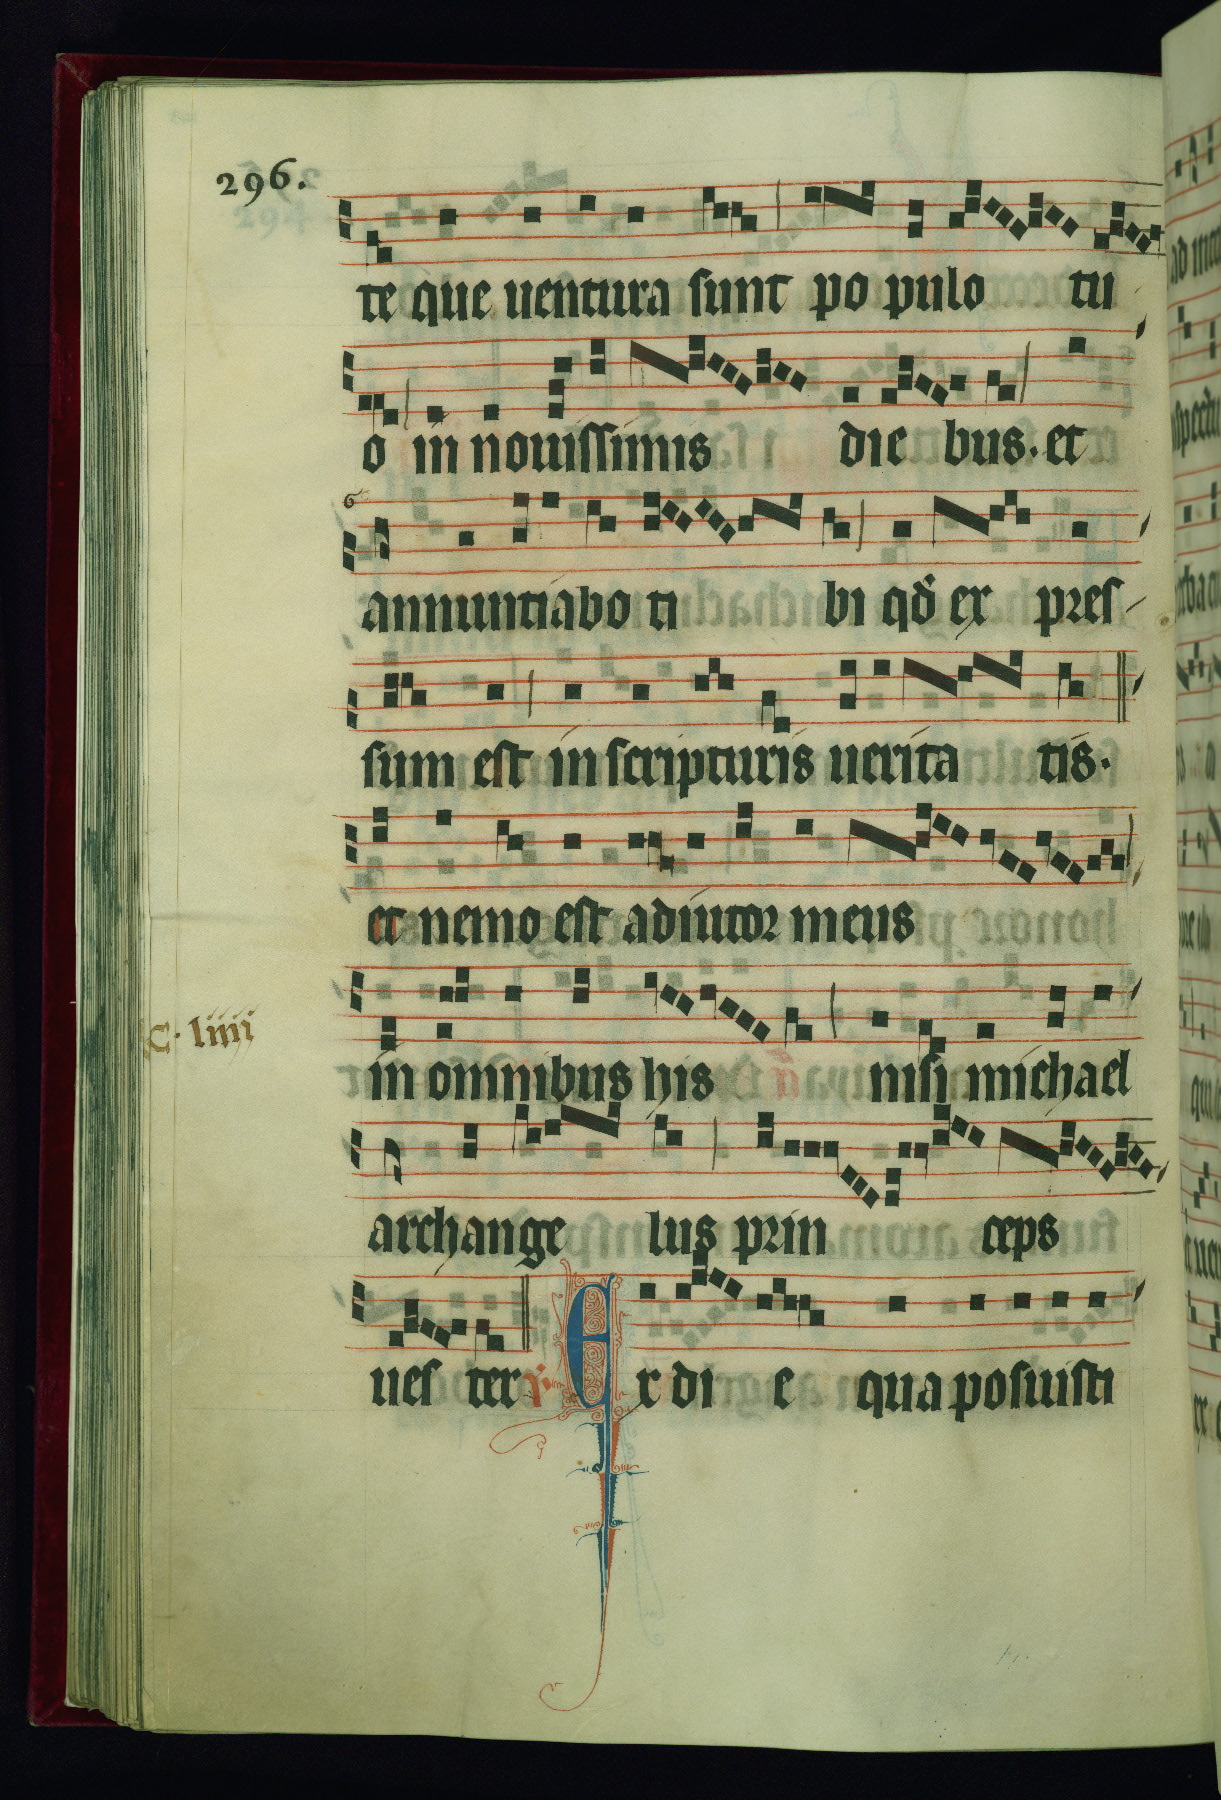 296.
te que uentura sunt po pulo tu
o in nouissimis die bus. et
annuntiabo ti bi qd̄ ex pres-
sum est in scripturis uerita tis.
et nemo est adiutor meus
in omnibus his nisi michael
C. liiii
archange lus prin ceps
ues ter Ex di e qua posuisti